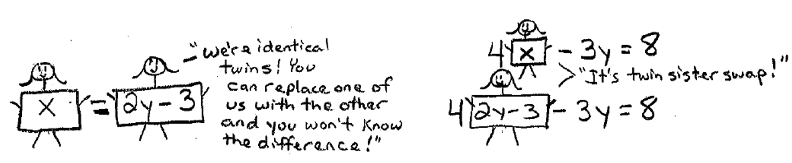 x = 2y - 3
"we're identical
twins! You
can replace one of
us with the other
and you won't know
the difference!"
4 x - 3y = 8
"It's twin sister swap!"
4 2y-3 - 3y = 8